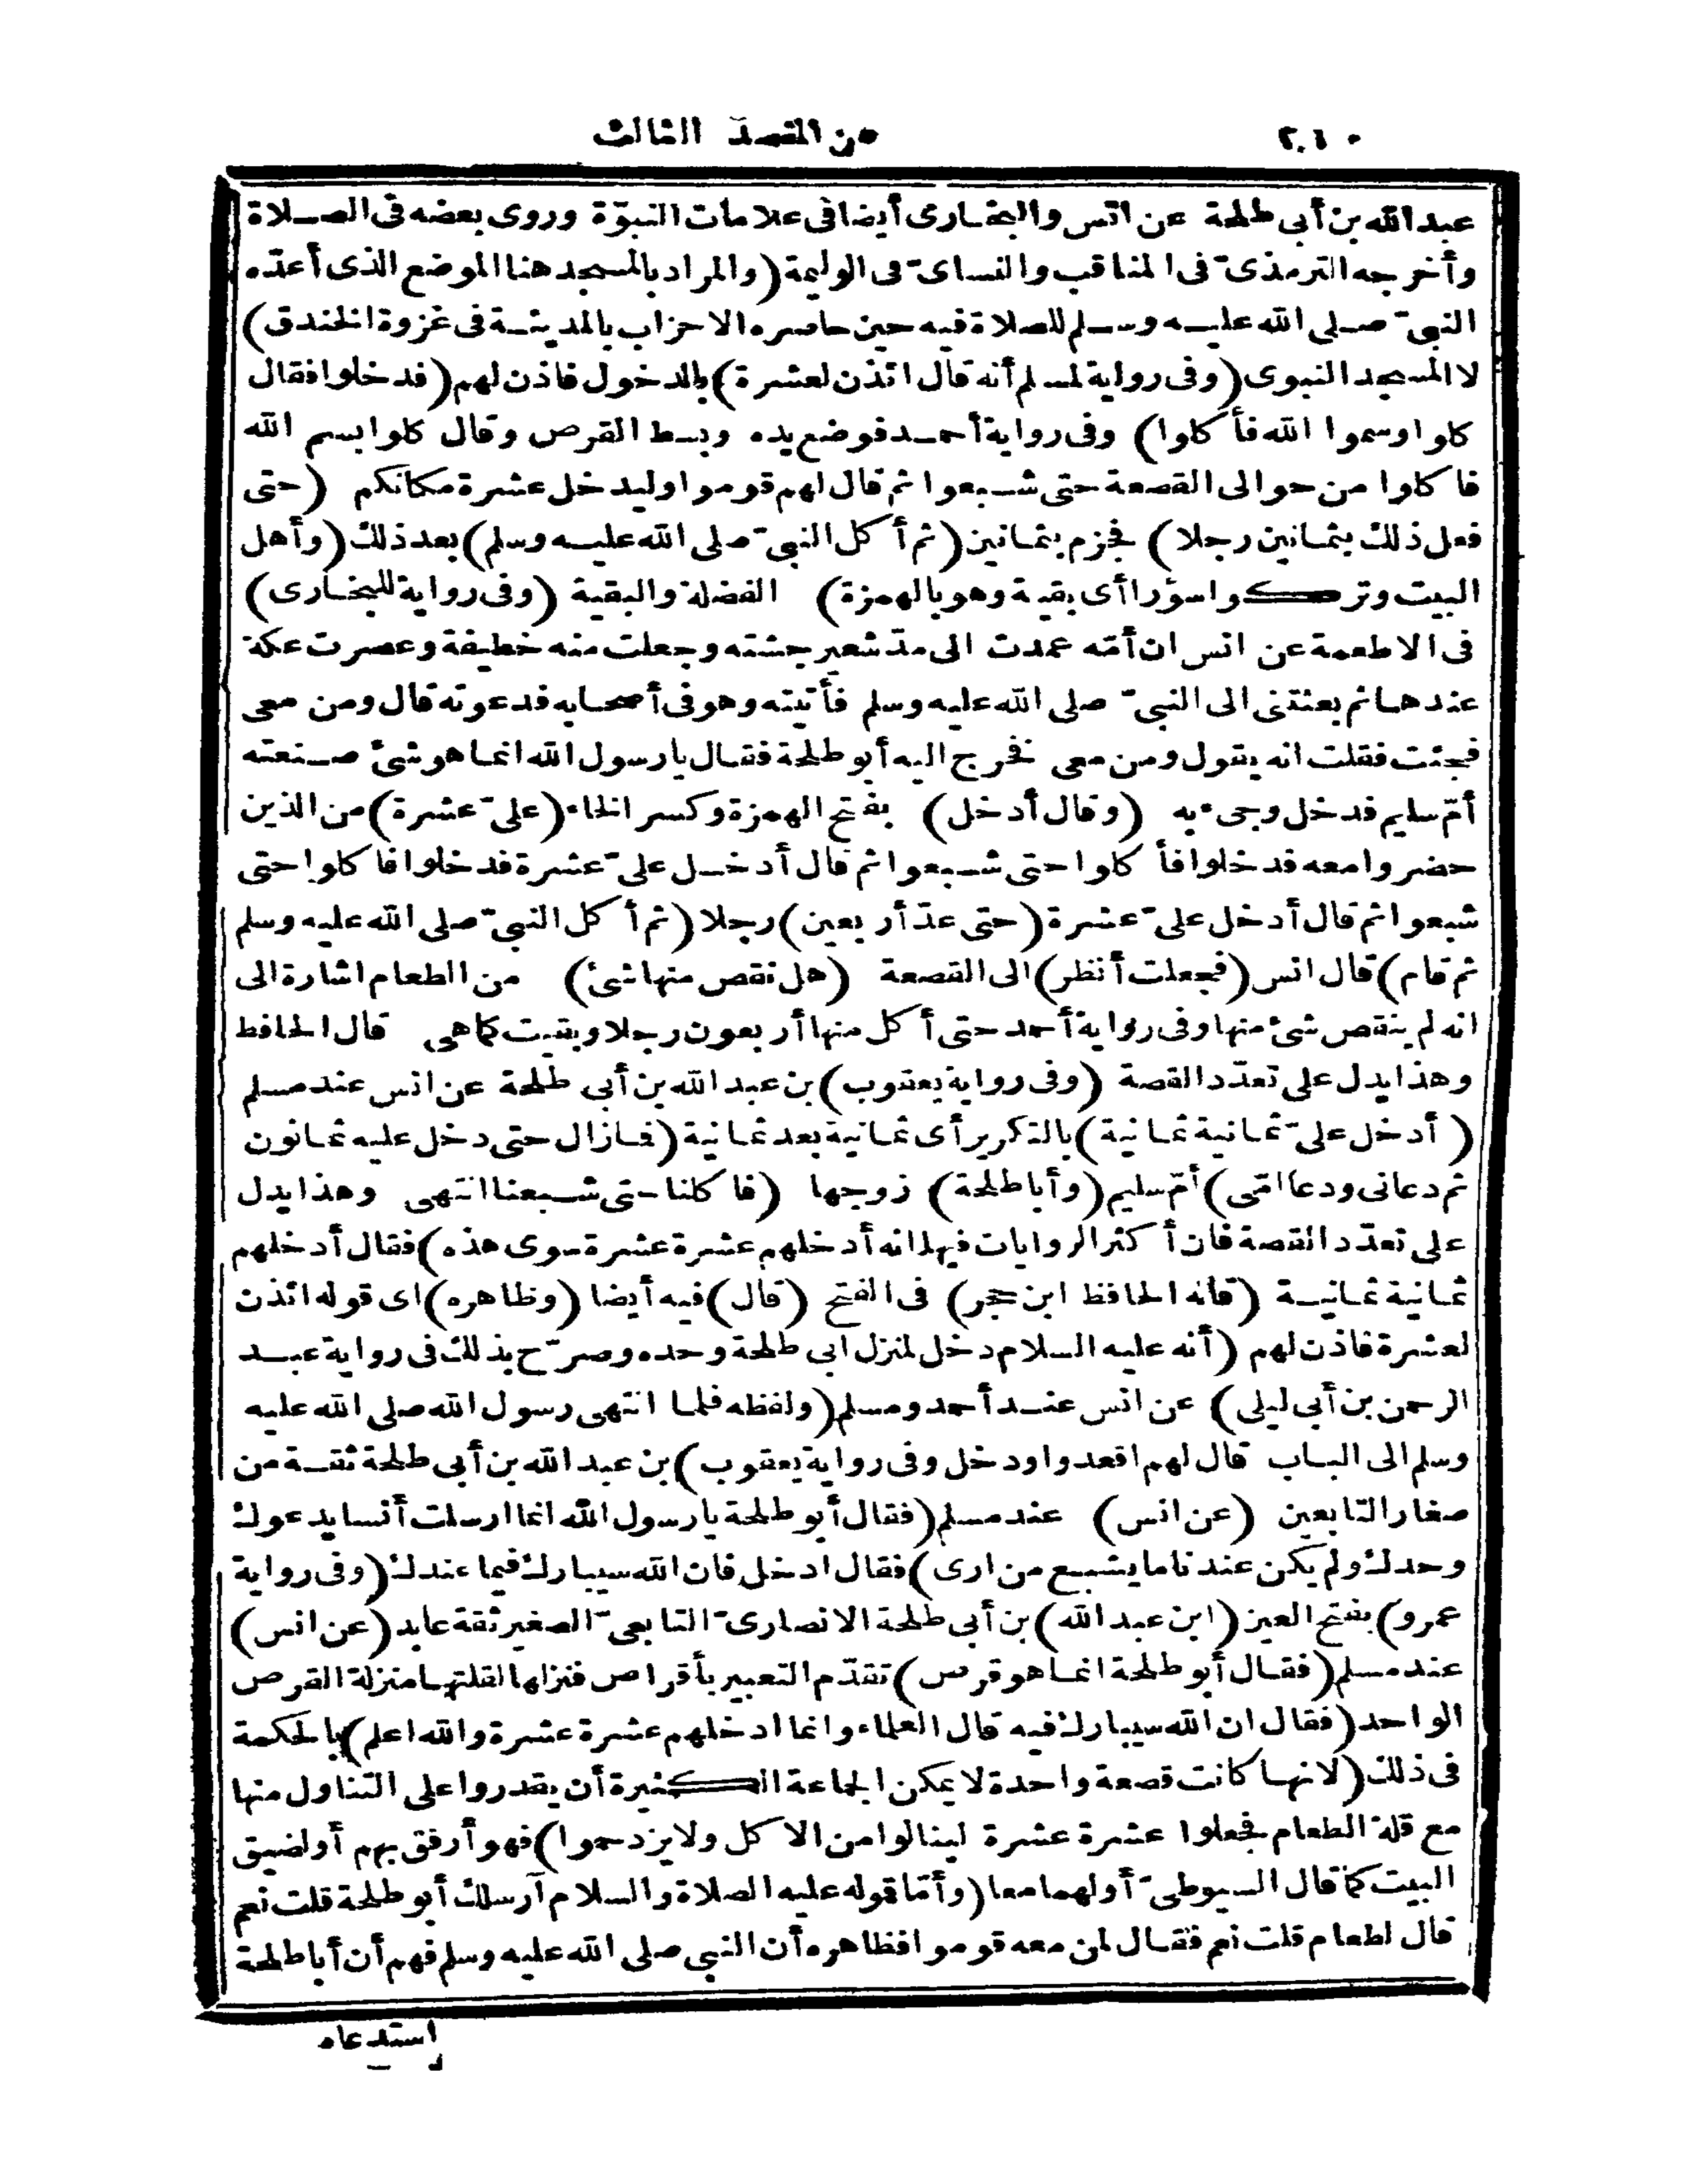 ٢٠٤٠ من المقصد الثالث
عبدالله بن أبى طلحة عن انس والبخارى أيضا فى علامات النبوّة وروى بعضه فى الصلاة
وأخرجه الترمذىّ فى المناقب والنساىّ فى الوليمة (والمراد بالمسجد هنا الموضع الذى أعدّه
النبىّ صلى الله عليه وسلم للصلاة فيه حين حاصره الاحزاب بالمدينة فى غزوة الخندق)
لا المسجد النبوى (وفى رواية لمسلم أنه قال ائذن لعشرة) بالدخول فاذن لهم (فدخلوا فقال
كلوا وسموا الله فأكلوا) وفى رواية أحمد فوضع يده وبسط القرص وقال كلوا بسم الله
فاكلوا من حوالى القصعة حتى شبعوا ثم قال لهم قوموا وليدخل عشرة مكانكم (حتى
فعل ذلك بثمانين رجلا) فجزم بثمانين (ثم أكل النبىّ صلى الله عليه وسلم) بعد ذلك (وأهل
البيت وتركوا سؤرا أى بقية وهو بالهمزة) الفضلة والبقية (وفى رواية للبخارى)
فى الاطعمة عن انس ان أمّه عمدت الى مدّ شعير جشته وجعلت منه خطيفة وعصرت عكة
عندها ثم بعثتنى الى النبىّ صلى الله عليه وسلم فأتيته وهو فى أصحابه فدعوته قال ومن معى
فجئت فقلت انه يقول ومن معى فخرج اليه أبو طلحة فقال يا رسول الله انما هو شئ صنعته
أمّ سليم فدخل وجىء به (وقال أدخل) بفتح الهمزة وكسر الخاء (علىّ عشرة) من الذين
حضروا معه فدخلوا فأكلوا حتى شبعوا ثم قال أدخل علىّ عشرة فدخلوا فاكلوا حتى
شبعوا ثم قال أدخل علىّ عشرة (حتى عدّ أربعين) رجلا (ثم أكل النبىّ صلى الله عليه وسلم
ثم قام) قال انس (فجعلت أنظر) الى القصعة (هل نقص منها شئ) من الطعام اشارة الى
انه لم ينقص شئ منها وفى رواية أحمد حتى أكل منها أربعون رجلا وبقيت كما هى قال الحافظ
وهذا يدل على تعدّد القصة (وفى رواية يعقوب) بن عبد الله بن أبى طلحة عن انس عند مسلم
(أدخل علىّ ثمانية ثمانية) بالتكرير أى ثمانية بعد ثمانية (فمازال حتى دخل عليه ثمانون
ثم دعانى ودعا امّى) أمّ سليم (وأبا طلحة) زوجها (فاكلنا حتى شبعنا انتهى وهذا يدل
على تعدّد القصة فان أكثر الروايات فيها انه أدخلهم عشرة عشرة سوى هذه) فقال أدخلهم
ثمانية ثمانية (قاله الحافظ ابن حجر) فى الفتح (قال) فيه أيضا (وظاهره) اى قوله ائذن
لعشرة فاذن لهم (أنه عليه السلام دخل لمنزل ابى طلحة وحده وصرّح بذلك فى رواية عبد
الرحمن بن أبى ليلى) عن انس عند أحمد ومسلم (ولفظه فلما انتهى رسول الله صلى الله عليه
وسلم الى الباب قال لهم اقعدوا ودخل وفى رواية يعقوب) بن عبد الله بن أبى طلحة ثقة من
صغار التابعين (عن انس) عند مسلم (فقال أبو طلحة يا رسول الله انما ارسلت أنسا يدعوك
وحدك ولم يكن عندنا ما يشبع من ارى) فقال ادخل فان الله سيبارك فيما عندك (وفى رواية
عمرو) بفتح العين (ابن عبد الله) بن أبى طلحة الانصارىّ التابعىّ الصغير ثقة عابد (عن انس)
عند مسلم (فقال أبو طلحة انما هو قرص) تقدّم التعبير بأقراص فنزلها لقلتها منزلة القرص
الواحد (فقال ان الله سيبارك فيه قال العلماء وانما ادخلهم عشرة عشرة والله اعلم) بالحكمة
فى ذلك (لانها كانت قصعة واحدة لا يمكن الجماعة الكثيرة أن يقدروا على التناول منها
مع قلة الطعام فجعلوا عشرة عشرة لينالوا من الاكل ولا يزدحموا) فهو أرفق بهم أو لضيق
البيت كما قال السيوطىّ أولهما معا (وأمّا قوله عليه الصلاة والسلام آرسلك أبو طلحة قلت نعم
قال لطعام قلت نعم فقال لمن معه قوموا فظاهره أن النبى صلى الله عليه وسلم فهم أن أبا طلحة
استدعاه